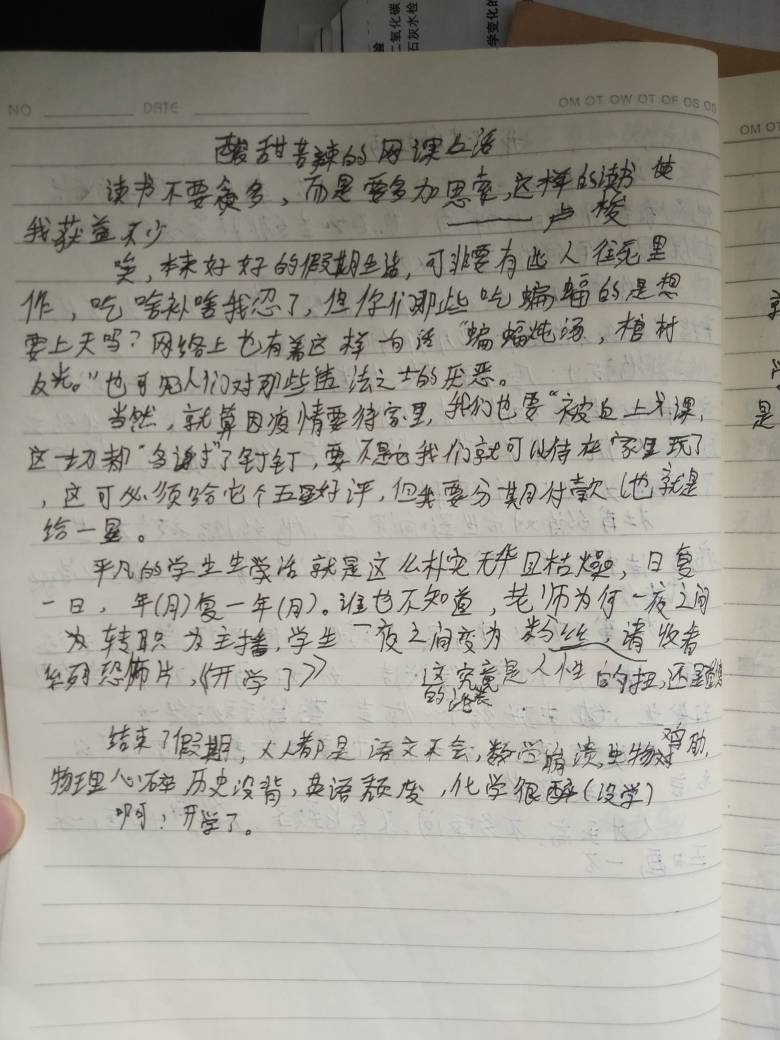 检
二氧化碳
石灰水检
学变化的
NO DATE
OM OT OW OT OF OS OS
OM OT
酸甜苦辣的网课生活
读书不要贪多，而是要多加思索，这样的读书使
我获益不少 ——卢梭
唉，本来好好的假期生活，可非要有些人往死里
作，吃啥补啥我忍了，但你们那些吃蝙蝠的是想
要上天吗？网络上也有着这样一句话“蝙蝠炖汤，棺材
反光。”也可见人们对那些违法之士的厌恶。
当然，就算因疫情要待家里，我们也要“被迫上网课，
这一切都“多谢”了钉钉，要不是它我们就可以待在家里玩了
，这可必须给它个五星好评，但我要分期付款（也就是
给一星。
平凡的学生生活就是这么朴实无华且枯燥，日复
一日，年(月)复一年(月)。谁也不知道，老师为何一夜之间
为转职为主播，学生一夜之间变为粉丝，请收看
系列恐怖片，《开学了》 这究竟是人性的扭，还是
的沦丧
结束了假期，人人都是语文不会，数学崩溃生物对鸡肋，
物理心碎历史没背，英语颓废，化学很醉(没学)
啊！开学了。
是